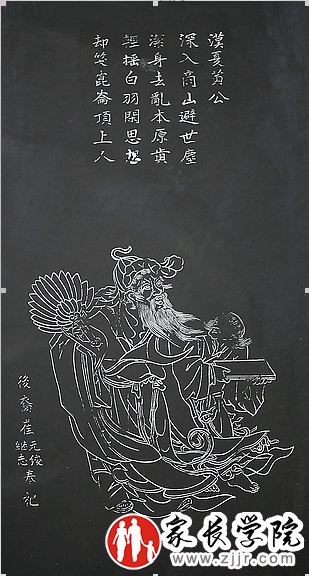 漢夏黄公
深入商山避世塵
潔身去亂本原眞
輕摇白羽閑思想
却笑崑崙頂上人
後裔崔元俊
継志奉祀
家长学院
www.zjjr.com